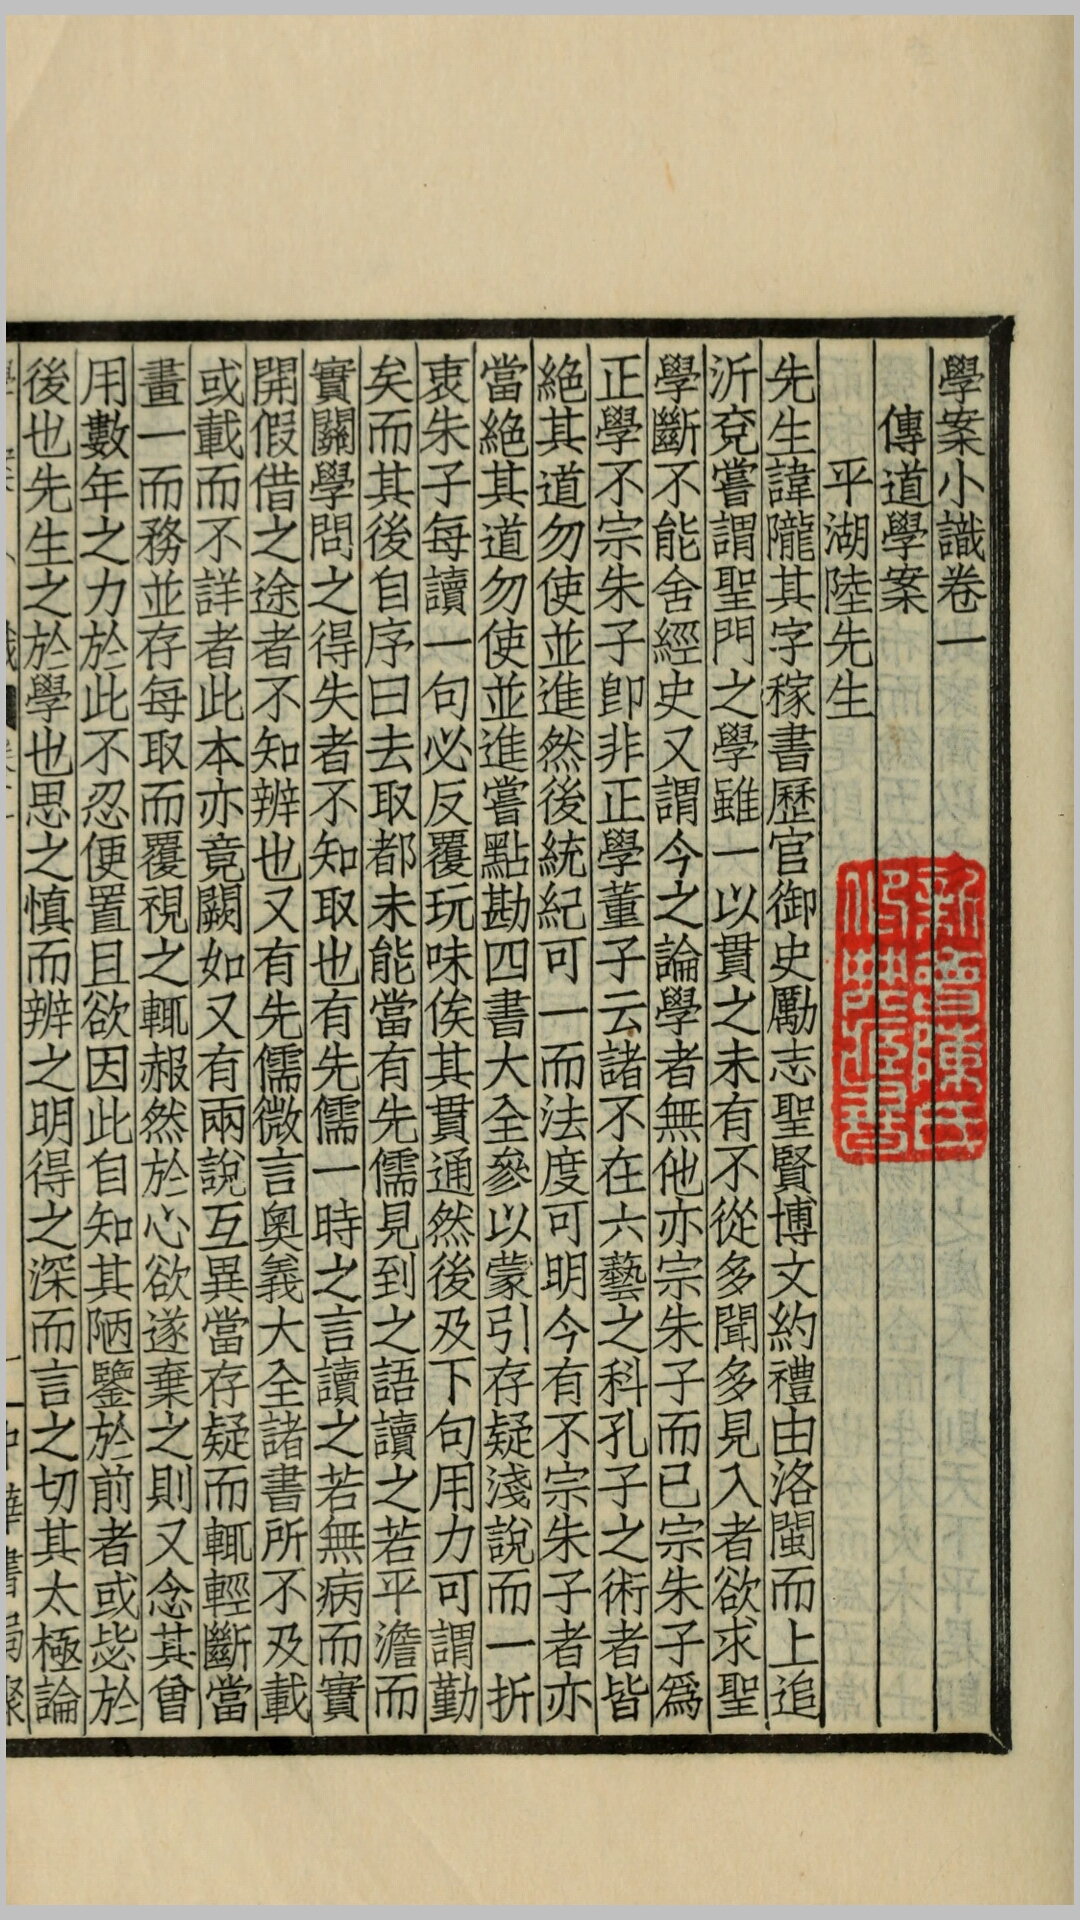 學案小識卷一
傳道學案
平湖陸先生
先生諱隴其字稼書歷官御史勵志聖賢博文約禮由洛閩而上追
沂兗嘗謂聖門之學雖一以貫之未有不從多聞多見入者欲求聖
學斷不能舍經史又謂今之論學者無他亦宗朱子而已宗朱子爲
正學不宗朱子卽非正學董子云諸不在六藝之科孔子之術者皆
絶其道勿使並進然後統紀可一而法度可明今有不宗朱子者亦
當絶其道勿使並進嘗點勘四書大全參以蒙引存疑淺說而一折
衷朱子每讀一句必反覆玩味俟其貫通然後及下句用力可謂勤
矣而其後自序曰去取都未能當有先儒見到之語讀之若平澹而
實關學問之得失者不知取也有先儒一時之言讀之若無病而實
開假借之途者不知辨也又有先儒微言奧義大全諸書所不及載
或載而不詳者此本亦竟闕如又有兩說互異當存疑而輒輕斷當
畫一而務並存每取而覆視之輒赧然於心欲遂棄之則又念其曾
用數年之力於此不忍便置且欲因此自知其陋鑒於前者或毖於
後也先生之於學也思之慎而辨之明得之深而言之切其太極論